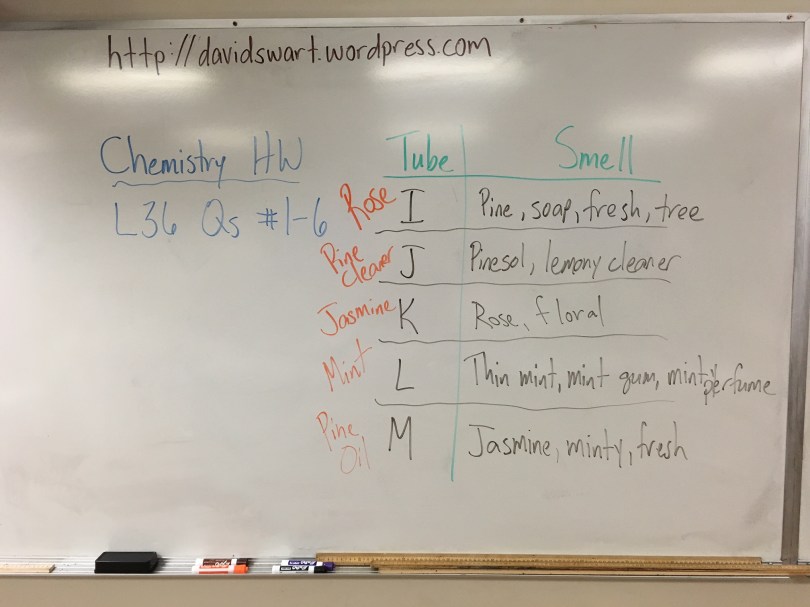 http://davidswart.wordpress.com
Chemistry HW
L36 Qs #1-6
Tube Smell
Rose I Pine, soap, fresh, tree
Pine cleaner J Pinesol, lemony cleaner
Jasmine K Rose, floral
Mint L Thin mint, mint gum, minty perfume
Pine Oil M Jasmine, minty, fresh